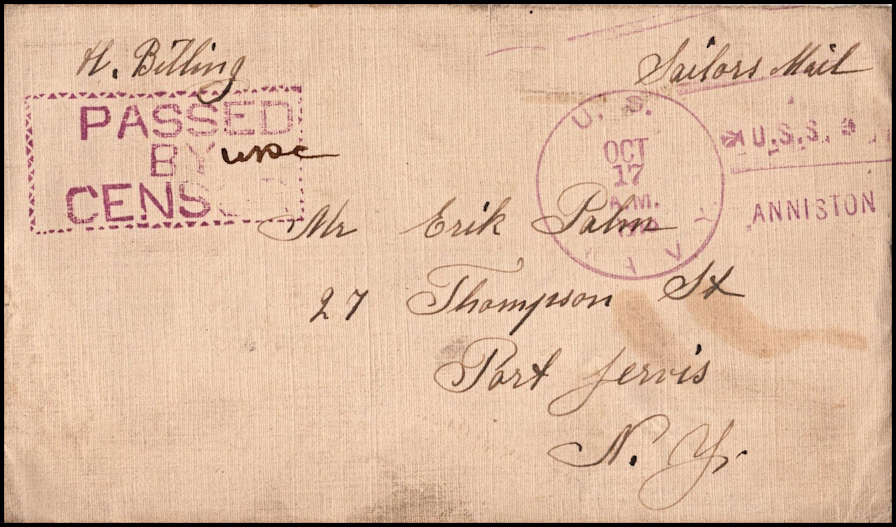 H. Billing
Sailors Mail
PASSED
BY
CENS
U. S.
OCT
17
A.M.
NAVY
U.S.S.
ANNISTON
Mr Erik Palm
27 Thompson St
Port Jervis
N. Y.